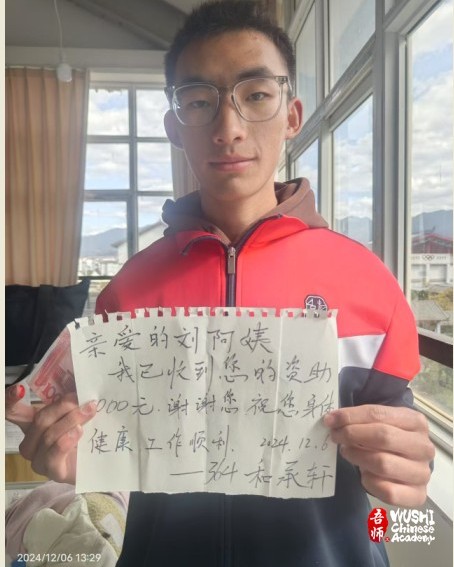 亲爱的刘阿姨
我已收到您的资助
000元.谢谢您 祝您身体
健康 工作顺利. 2024.12.6
——364 和承轩
2024/12/06 13:29
吾师
WUSHI
Chinese
Academy